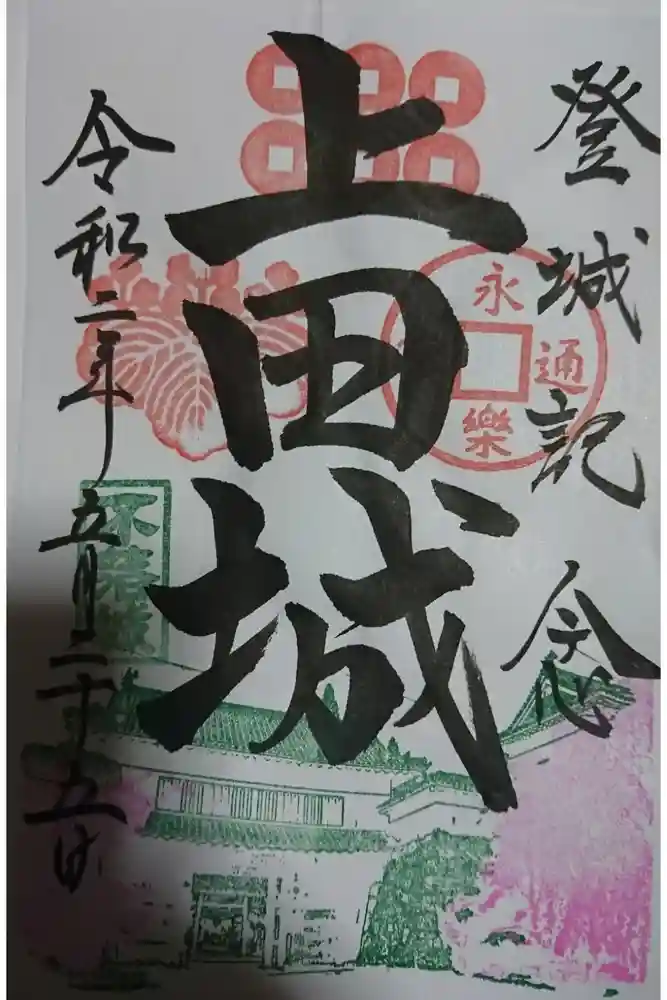 登城記念
上田城
永
通
樂
令和二年五月二十五日
不落城